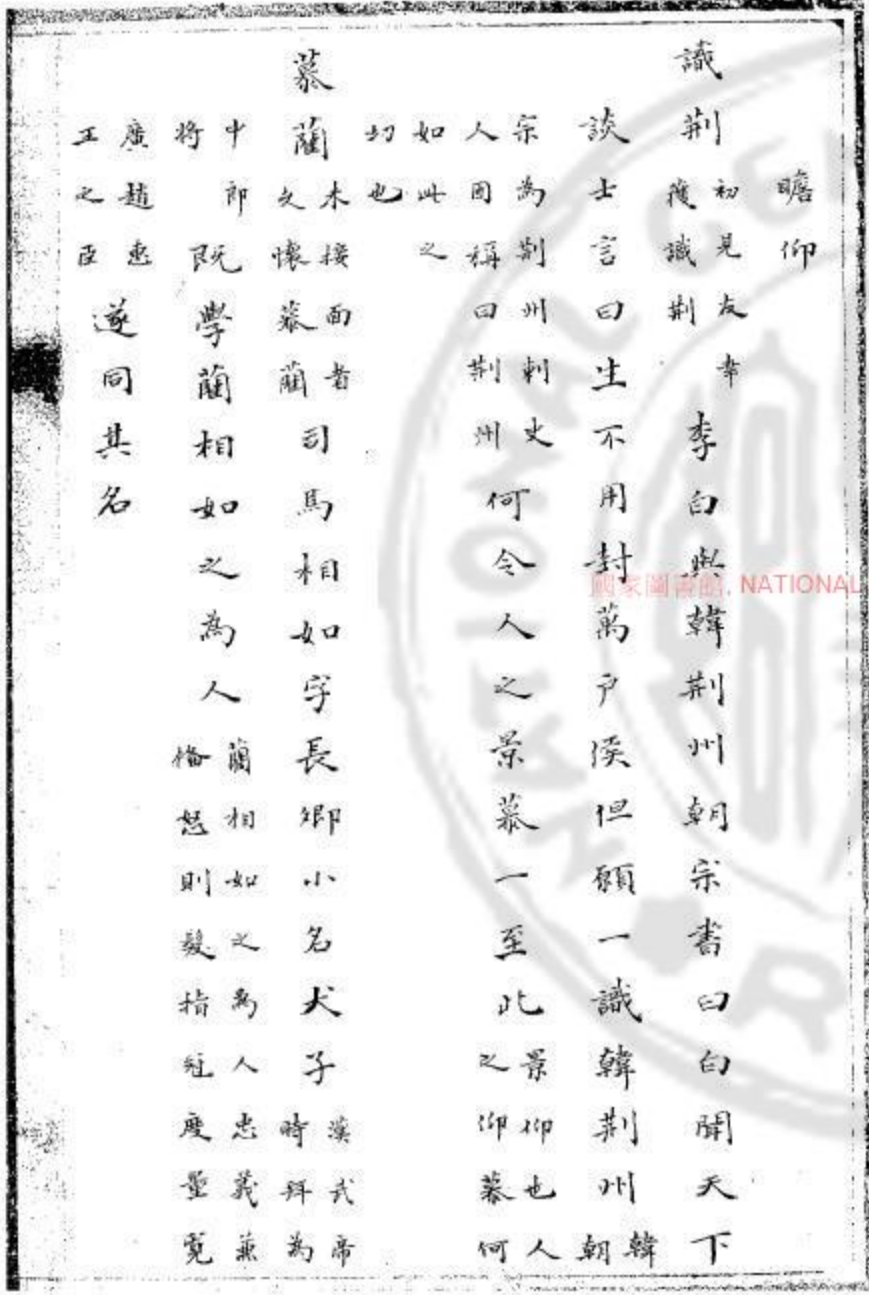 瞻仰
識荊
初見友幸
獲識荊
李白與韓荊州朝宗書曰白聞天下
談士言曰生不用封萬戶侯但願一識韓荊州
韓
朝
宗為荊州刺史
人因稱曰荊州
何令人之景慕一至此
景仰也人
之仰慕何
如此之
切也
慕藺
未接面者
久懷慕藺
司馬相如字長卿小名犬子
漢武帝
時拜為
中郎
將
既學藺相如之為人
藺相如之為人忠義兼
怒則髮指冠度量寬
廣趙惠
王之臣
遂同其名
國家圖書館, NATIONAL